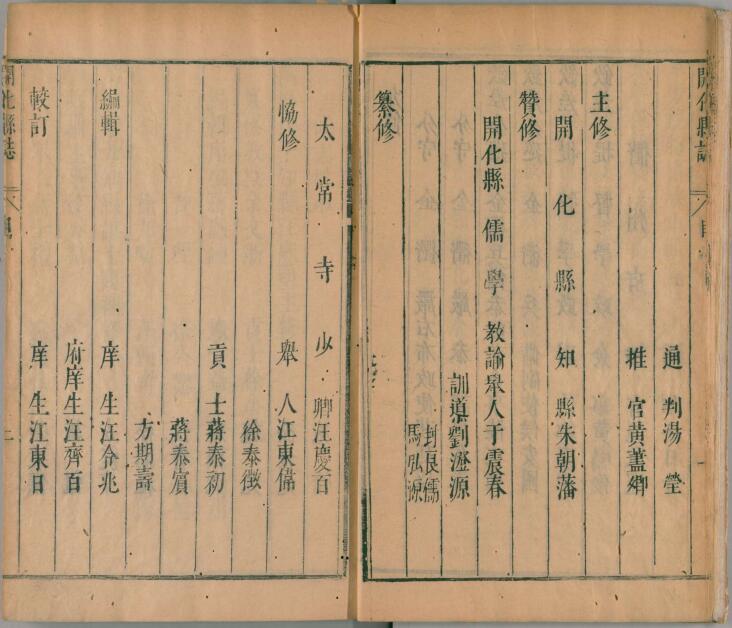 開化縣誌
通判湯瑩
推官黃藎卿
主修
開化縣知縣朱朝藩
贊修
開化縣儒學教諭舉人于震春
訓導劉瀣源
封良儒
馬弘源
纂修
太常寺少卿汪慶百
協修
舉人江東偉
徐泰徵
貢士蔣泰初
蔣泰賔
方期壽
編輯
庠生汪令兆
府庠生汪齊百
較訂
庠生江東日
開化縣誌